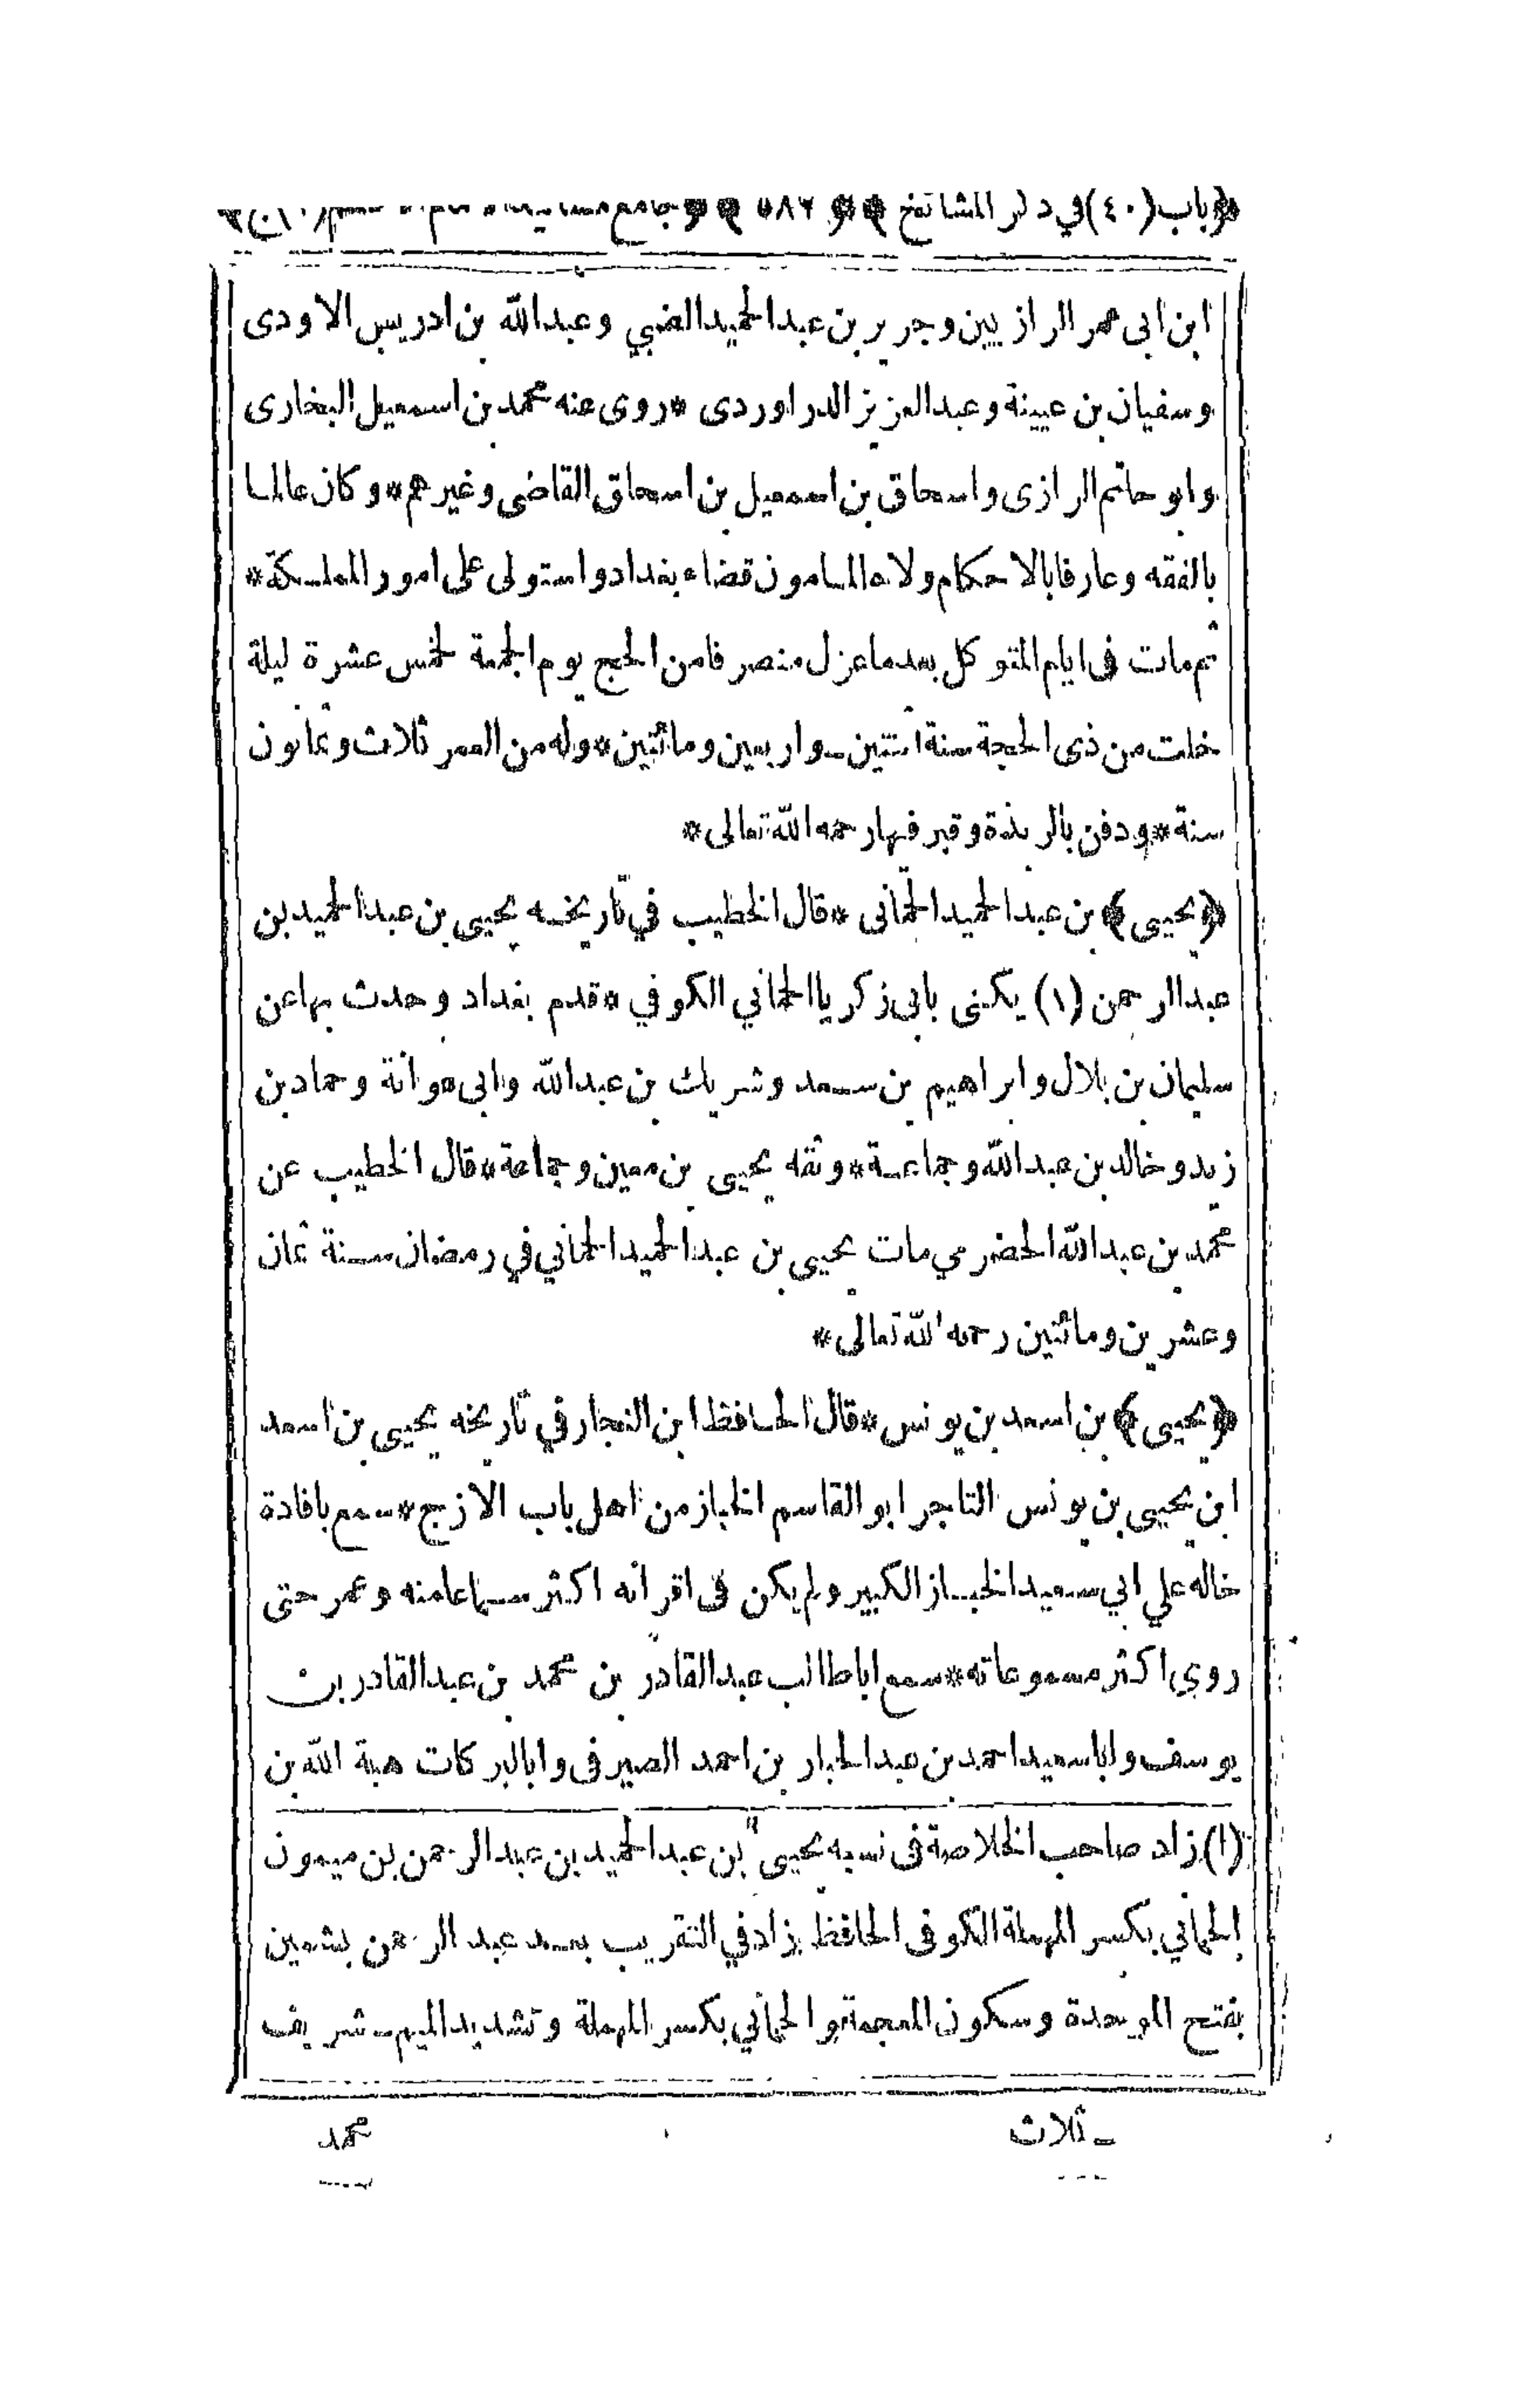 ﴿باب (٤٠) في ذكر المشائخ﴾ ﴿٥٨٢﴾ ﴿جامع
ابن ابى عمر الرازيين وجرير بن عبد الحميد الضبي وعبد الله بن ادريس الاودى
وسفيان بن عيينة وعبد العزيز الدراوردى * روى عنه محمد بن اسمعيل البخارى
وابو حاتم الرازى واسحاق بن اسمعيل بن اسحاق القاضى وغيرهم * وكان عالما
بالفقه وعارفا بالاحكام ولاه المامون قضاء بغداد واستولى على امور المملكة *
ثم مات فى ايام المتوكل بعد ما عزل منصرفا من الحج يوم الجمعة لخمس عشرة ليلة
خلت من ذى الحجة سنة اثنتين ـ واربعين ومائتين * وله من العمر ثلاث وثمانون
سنة * ودفن بالربذة وقبر فيها رحمه الله تعالى *
﴿يحيى﴾ بن عبد الحميد الحمانى * قال الخطيب في تاريخه يحيى بن عبد الحميد بن
عبد الرحمن (١) يكنى بابى زكريا الحماني الكوفي * قدم بغداد وحدث بها عن
سليمان بن بلال وابراهيم بن سعد وشريك بن عبد الله وابى عوانة وحماد بن
زيد وخالد بن عبد الله وجماعة * وثقه يحيى بن معين وجماعة * قال الخطيب عن
محمد بن عبد الله الحضرمي مات يحيى بن عبد الحميد الحماني في رمضان سنة ثمان
وعشرين ومائتين رحمه الله تعالى *
﴿يحيى﴾ بن اسعد بن يونس * قال الحافظ ابن النجار في تاريخه يحيى بن اسعد
ابن يحيى بن يونس التاجر ابو القاسم الخباز من اهل باب الازج * سمع بافادة
خاله علي ابي سعيد الخباز الكبير ولم يكن فى اقرانه اكثر سماعا منه وعمر حتى
روى اكثر مسموعاته * سمع ابا طالب عبد القادر بن محمد بن عبد القادر بن
يوسف وابا سعيد احمد بن عبد الجبار بن احمد الصيرفى وابا البركات هبة الله بن
(١) زاد صاحب الخلاصة فى نسبه يحيى بن عبد الحميد بن عبد الرحمن بن ميمون
الحماني بكسر المهملة الكوفى الحافظ زاد في التقريب بعد عبد الرحمن بشمين
بفتح الموحدة وسكون المعجمة والحماني بكسر المهملة وتشديد الميم ـ شريف
ـ ثلاث
محمد